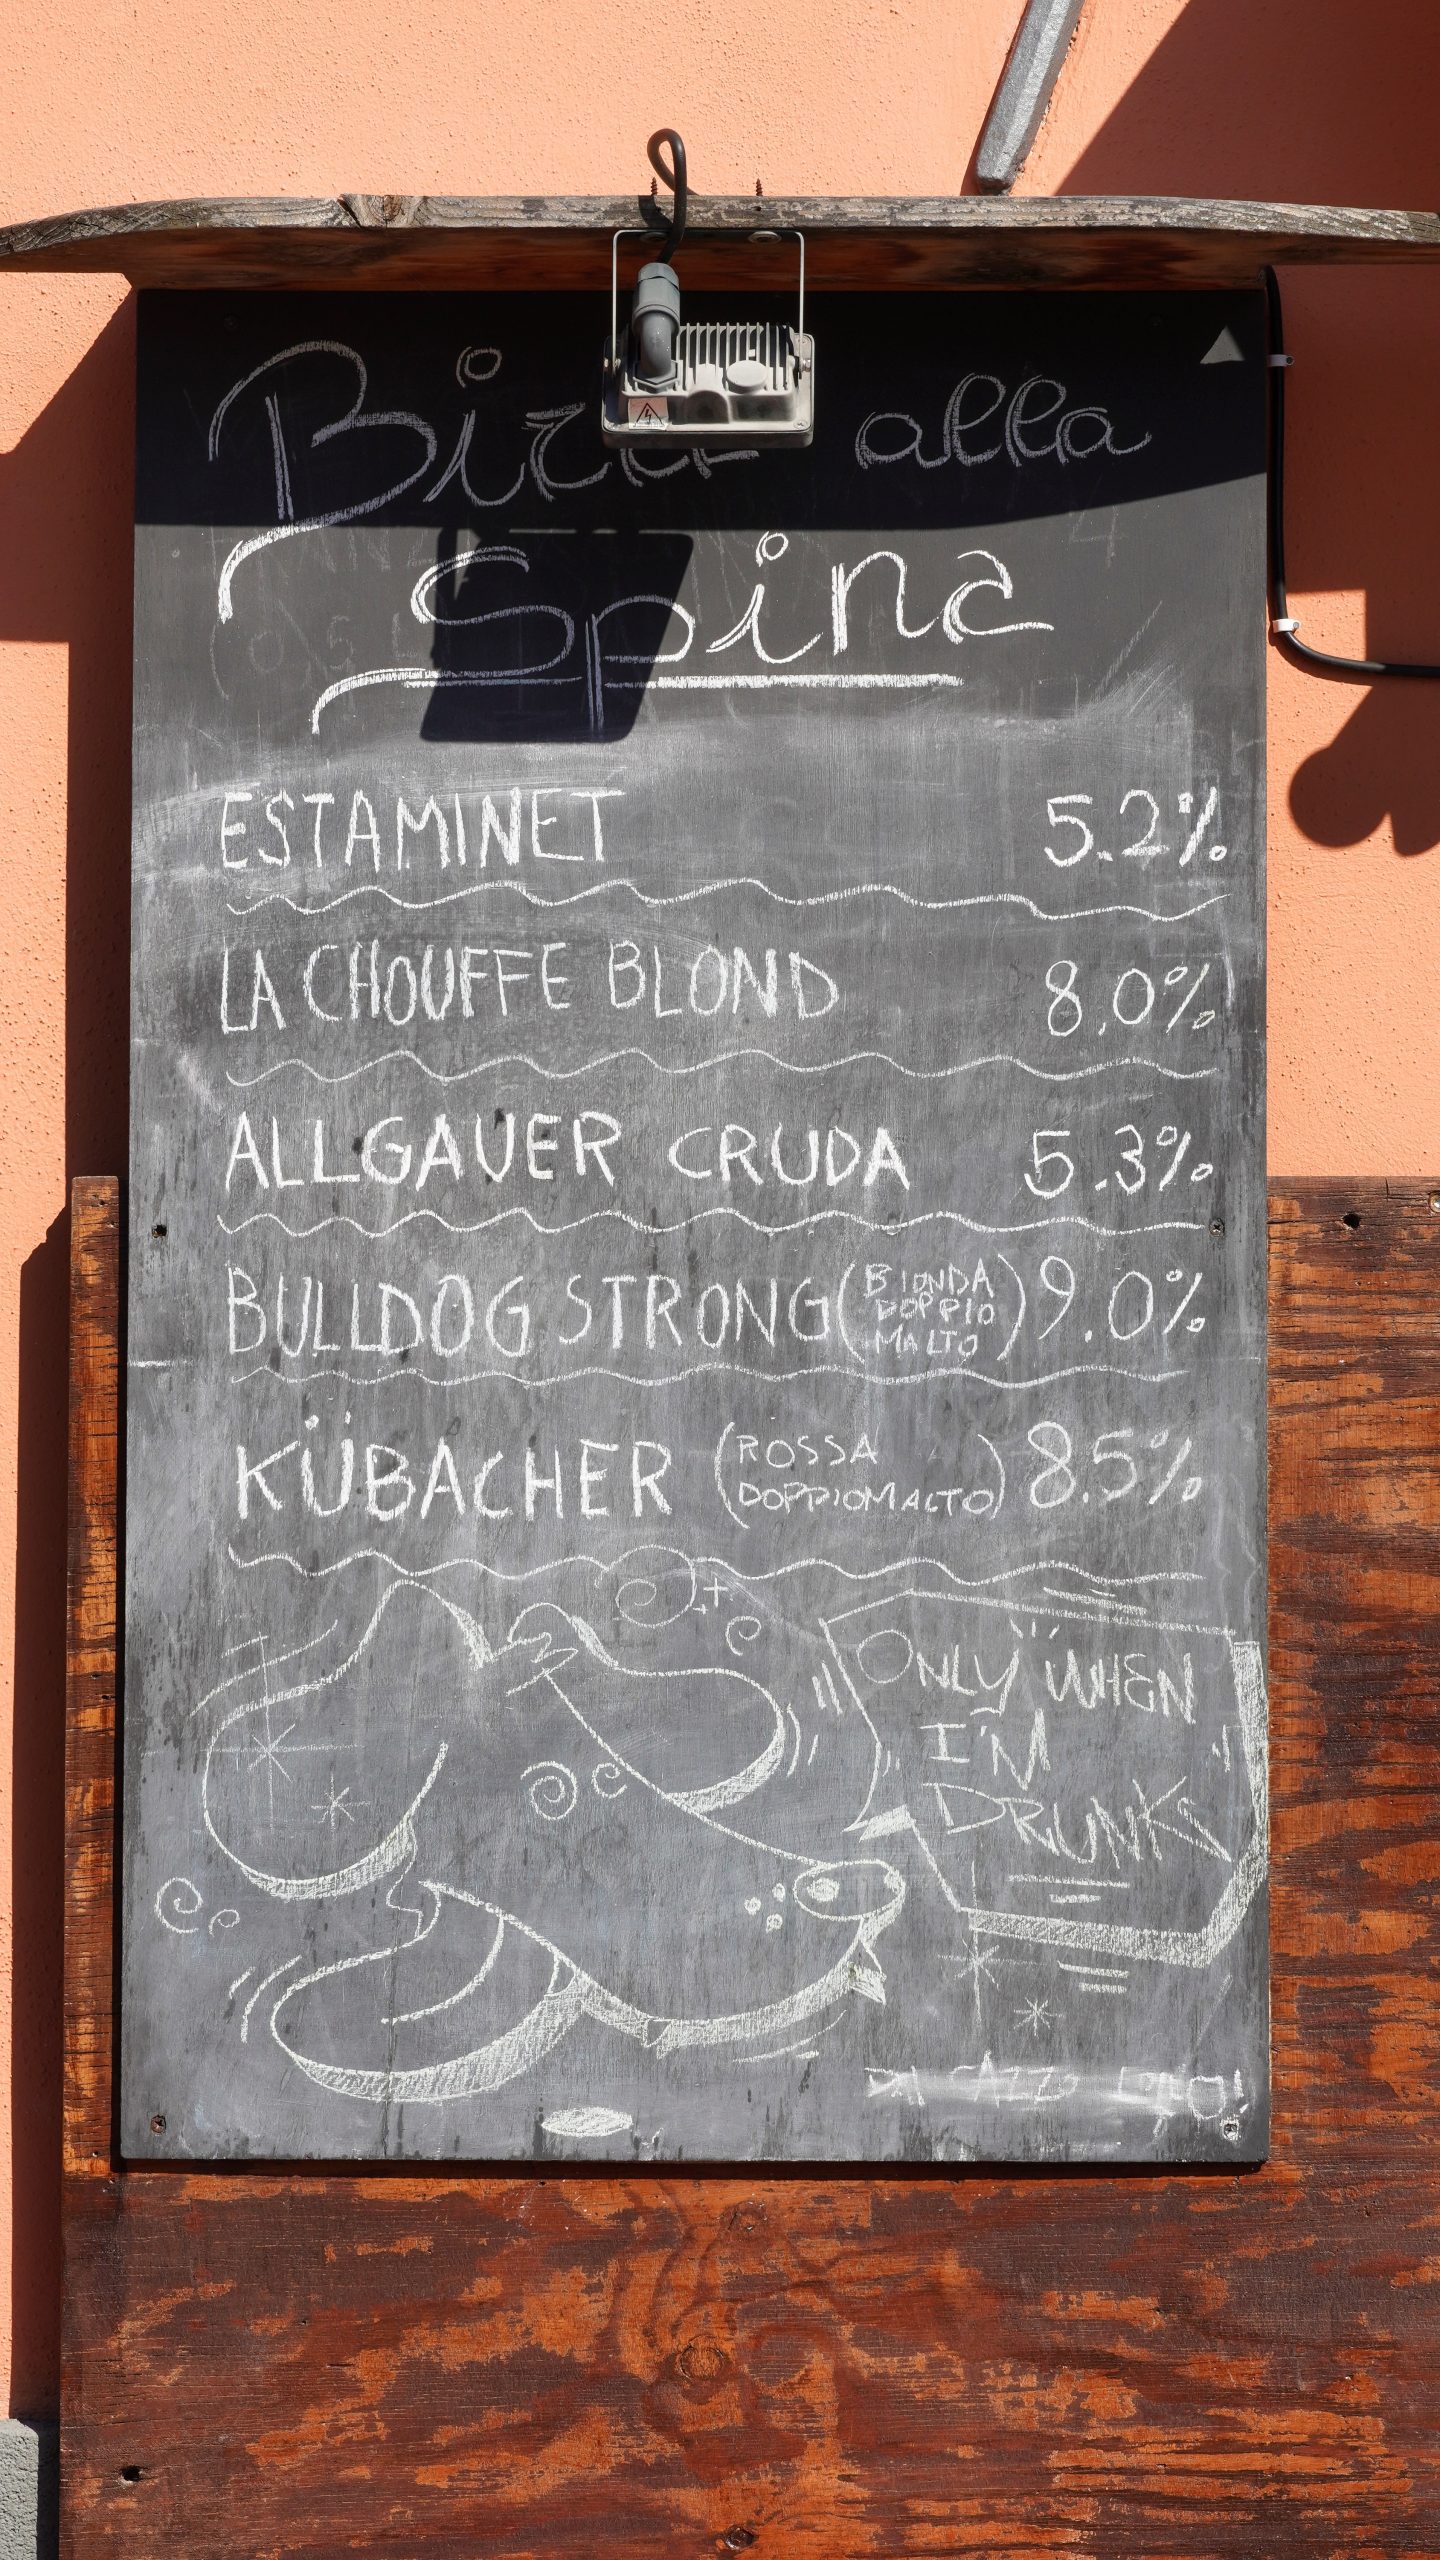 Birre alla
Spina
ESTAMINET 5.2%
LA CHOUFFE BLOND 8.0%
ALLGAUER CRUDA 5.3%
BULLDOG STRONG (BIONDA DOPPIO MALTO) 9.0%
KÜBACHER (ROSSA DOPPIOMALTO) 8.5%
ONLY WHEN
I'M
DRUNK